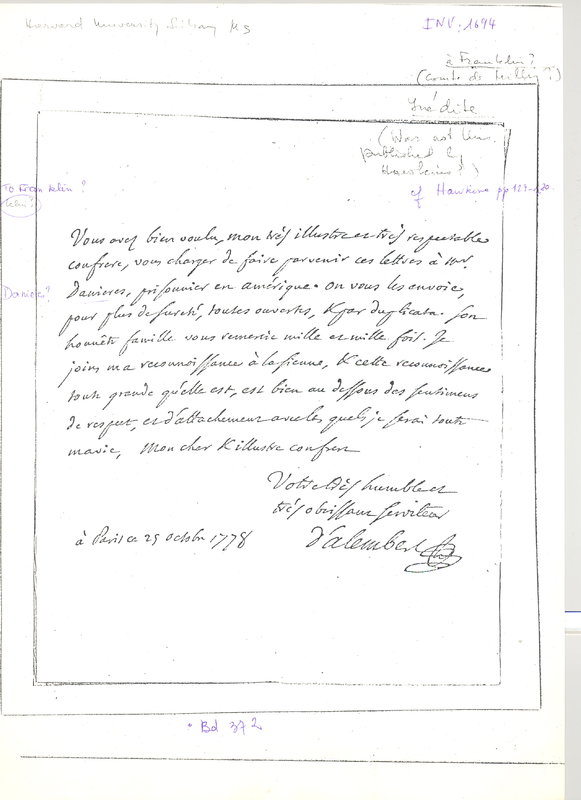 Harvard University Library MS
INV: 1694
à Franklin?
(Comte de Milly?)
Inédite
(Was not this
published by
Hawkins?)
To Franklin?
cf Hawkins pp 129-130
Vous avez bien voulu, mon très illustre et très respectable
confrere, vous charger de faire parvenir ces lettres à Mr.
Danieres?
Danieres, prisonnier en amérique. on vous les envoie,
pour plus de sureté, toutes ouvertes, & par duplicata. Son
honnête famille vous remercie mille et mille fois. Je
joins ma reconnoissance à la sienne, & cette reconnoissance
toute grande qu'elle est, est bien au dessous des sentimens
de respect, et d'attachement avec les quels je serai toute
ma vie, mon cher & illustre confrere
Votre très humble et
très obeissant serviteur
à Paris ce 29 octobre 1778
d'alembert
• Bd 372